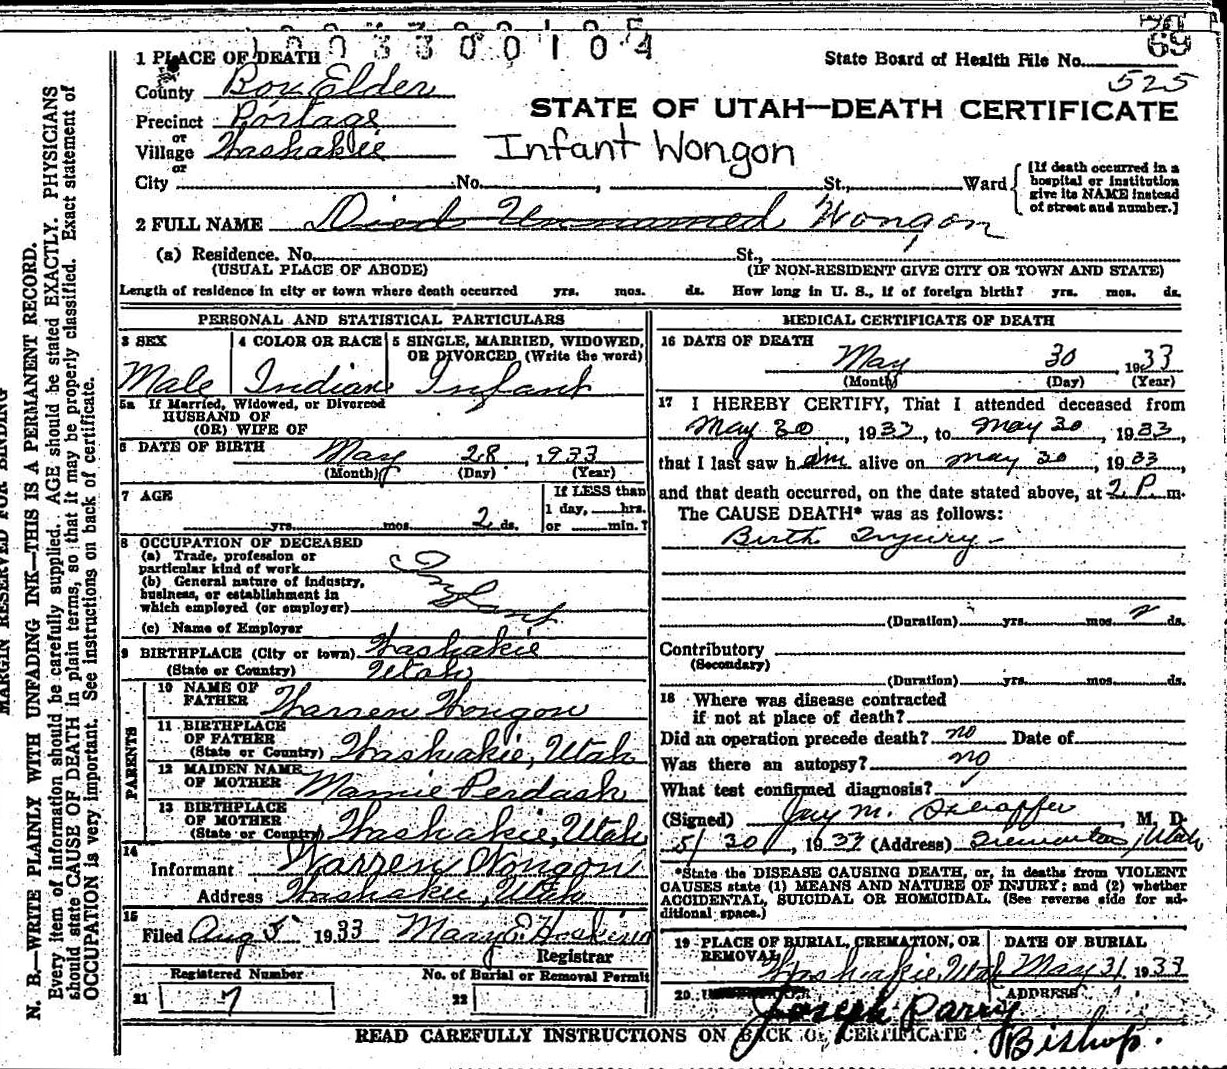 1003300104
69
1 PLACE OF DEATH
State Board of Health File No.
525
County Box Elder
STATE OF UTAH—DEATH CERTIFICATE
Precinct Portage
or
Village Washakie
Infant Wongon
or
City No. , St., Ward
[If death occurred in a
hospital or institution
give its NAME instead
of street and number.]
2 FULL NAME Died Unnamed Wongon
(a) Residence. No. St.,
(USUAL PLACE OF ABODE) (IF NON-RESIDENT GIVE CITY OR TOWN AND STATE)
Length of residence in city or town where death occurred yrs. mos. ds. How long in U. S., if of foreign birth? yrs. mos. ds.
PERSONAL AND STATISTICAL PARTICULARS
3 SEX 4 COLOR OR RACE 5 SINGLE, MARRIED, WIDOWED,
OR DIVORCED (Write the word)
Male Indian Infant
5a If Married, Widowed, or Divorced
HUSBAND OF
(OR) WIFE OF
6 DATE OF BIRTH May 28, 1933
(Month) (Day) (Year)
7 AGE
yrs. mos. 2 ds.
If LESS than
1 day, hrs.
or min.?
8 OCCUPATION OF DECEASED
(a) Trade, profession or
particular kind of work
(b) General nature of industry,
business, or establishment in
which employed (or employer)
Infant
(c) Name of Employer
9 BIRTHPLACE (City or town) Washakie
(State or Country) Utah
PARENTS
10 NAME OF
FATHER Warren Wongon
11 BIRTHPLACE
OF FATHER
(State or Country) Washakie, Utah
12 MAIDEN NAME
OF MOTHER Mamie Perdash
13 BIRTHPLACE
OF MOTHER
(State or Country) Washakie, Utah
14
Informant Warren Wongon
Address Washakie, Utah
15
Filed Aug 5 1933 Mary E Hoskins
Registrar
Registered Number No. of Burial or Removal Permit
21 7 22
MEDICAL CERTIFICATE OF DEATH
16 DATE OF DEATH
May 30, 1933
(Month) (Day) (Year)
17 I HEREBY CERTIFY, That I attended deceased from
May 30, 1933, to May 30, 1933,
that I last saw him alive on May 30, 1933,
and that death occurred, on the date stated above, at 2 P. m.
The CAUSE DEATH* was as follows:
Birth Injury-
(Duration) yrs. mos. 2 ds.
Contributory
(Secondary)
(Duration) yrs. mos. ds.
18 Where was disease contracted
if not at place of death?
Did an operation precede death? no Date of
Was there an autopsy? no
What test confirmed diagnosis?
(Signed) Jay M. Schaffer, M. D.
5/30, 1933 (Address) Tremonton, Utah
*State the DISEASE CAUSING DEATH, or, in deaths from VIOLENT
CAUSES state (1) MEANS AND NATURE OF INJURY; and (2) whether
ACCIDENTAL, SUICIDAL OR HOMICIDAL. (See reverse side for ad-
ditional space.)
19 PLACE OF BURIAL, CREMATION, OR
REMOVAL
DATE OF BURIAL
Washakie, Utah May 31 1933
20 ADDRESS
Joseph Parry
Bishop.
READ CAREFULLY INSTRUCTIONS ON BACK OF CERTIFICATE
MARGIN RESERVED FOR BINDING
N. B.—WRITE PLAINLY WITH UNFADING INK—THIS IS A PERMANENT RECORD.
Every item of information should be carefully supplied. AGE should be stated EXACTLY. PHYSICIANS
should state CAUSE OF DEATH in plain terms, so that it may be properly classified. Exact statement of
OCCUPATION is very important. See instructions on back of certificate.